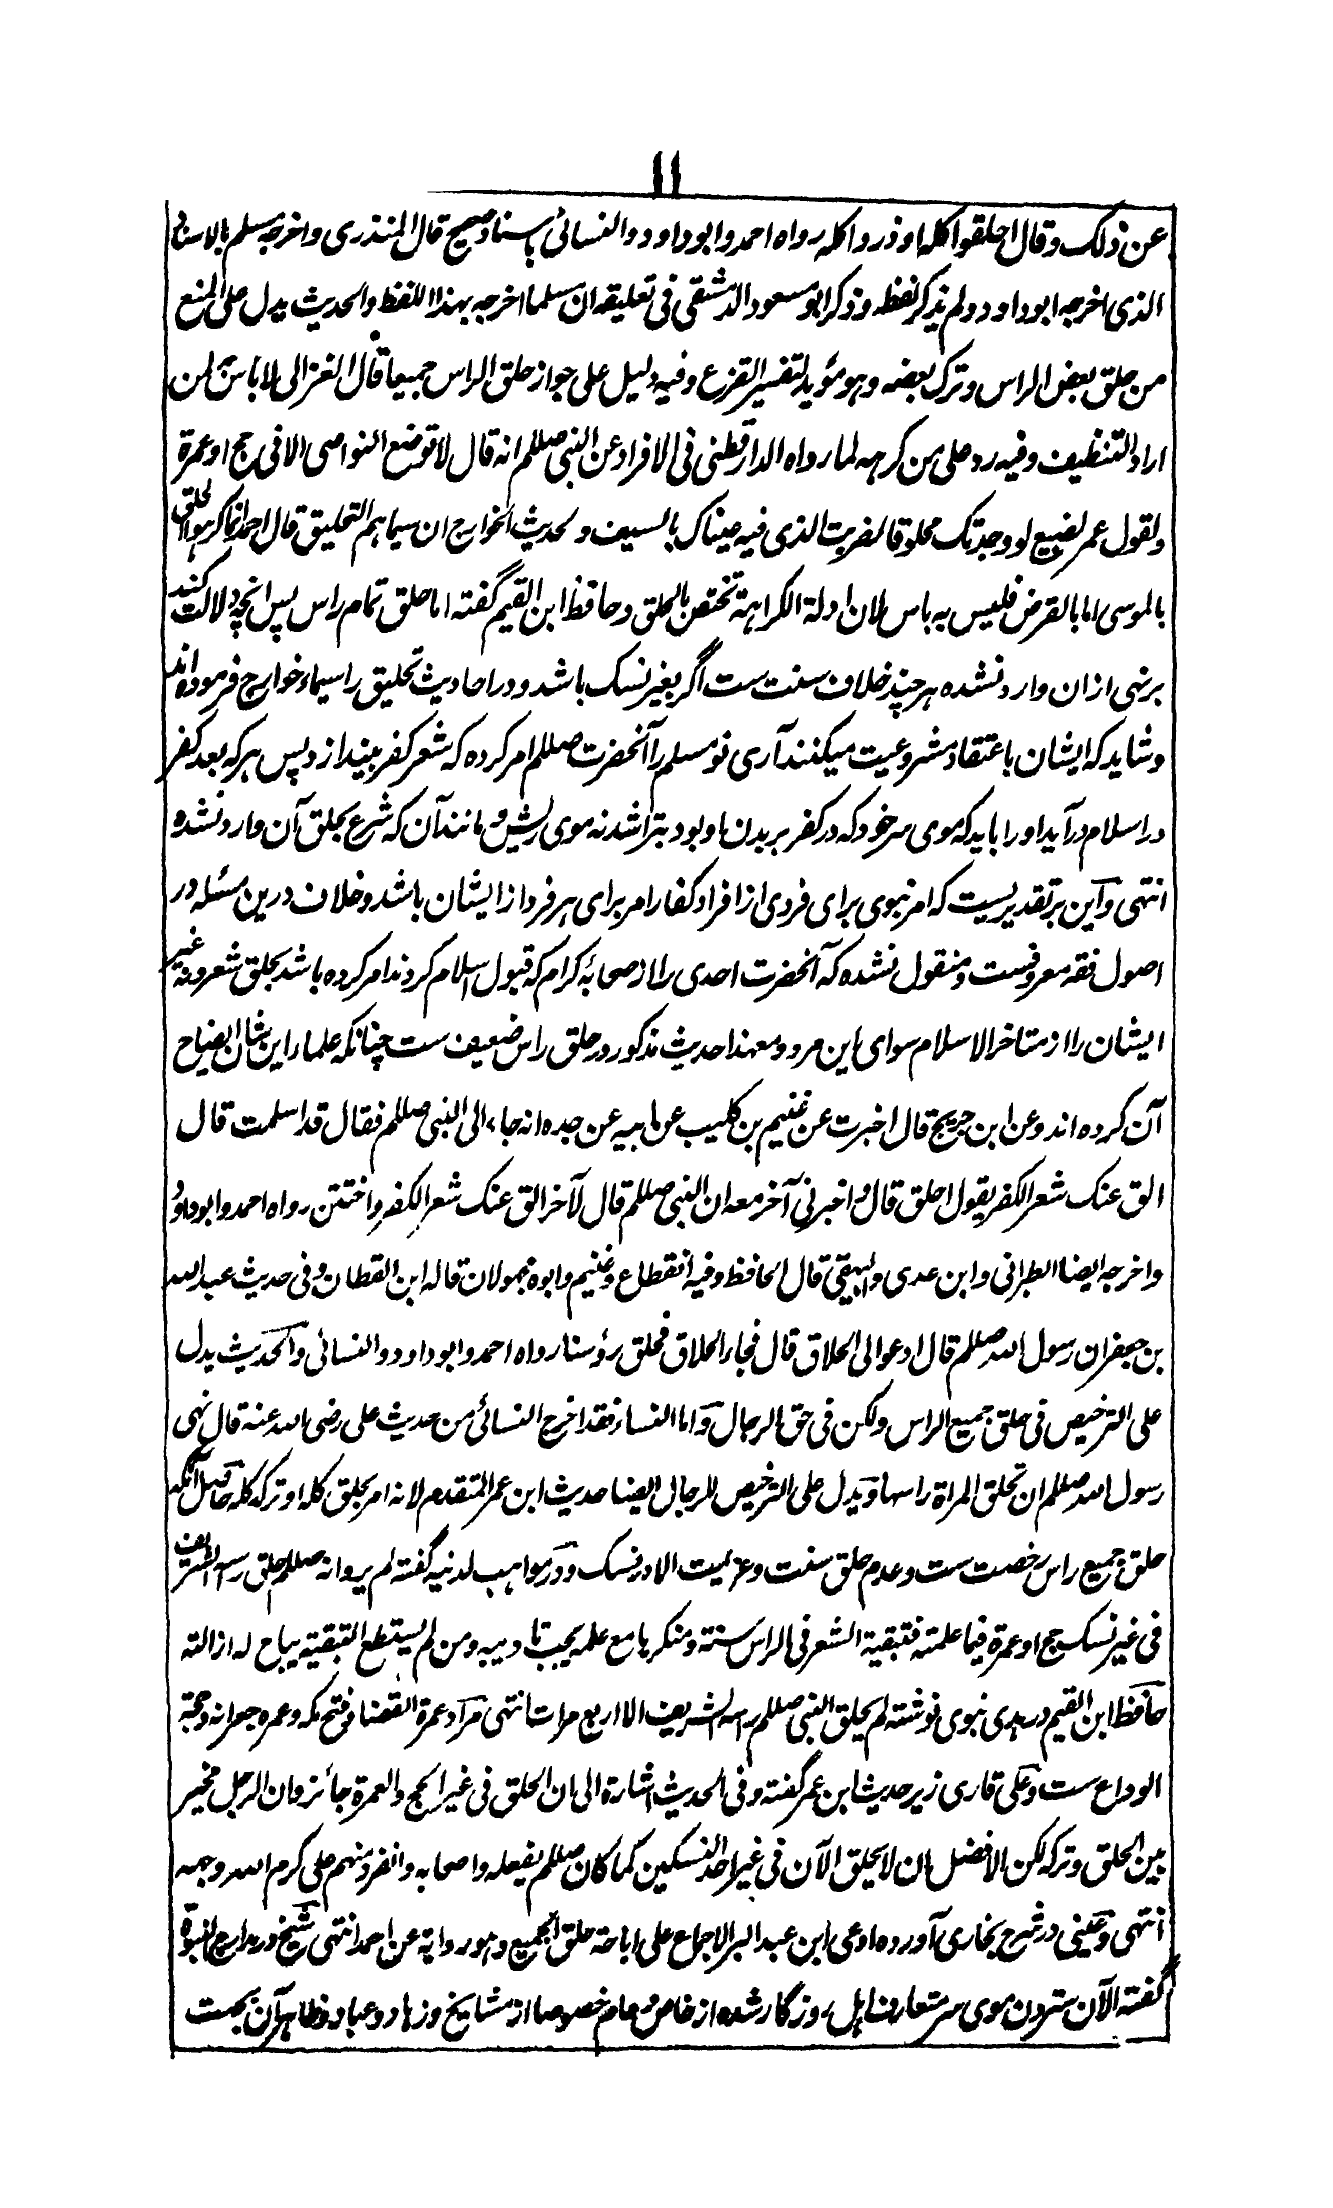 ۱۱
عن ذلک وقال احلقوا کله او ذروا کله رواه احمد وابوداود والنسائی باسناد صحیح قال المنذری واخرجه مسلم بالاسناد
الذی اخرجه ابوداود ولم یذکر لفظه وذکر ابو مسعود الدمشقی فی تعلیقه ان مسلما اخرجه بهذا اللفظ والحدیث یدل علی المنع
من حلق بعض الراس وترک بعضه وهو مؤید لتفسیر القزع وفیه دلیل علی جواز حلق الراس جمیعا قال الغزالی لا باس لمن
اراد التنظیف وفیه رد علی من کرهه لما رواه الدارقطنی فی الافراد عن النبی صللم انه قال لا توضع النواصی الا فی حج او عمرة
ولقول عمر لضبیع لو وجدتک محلوقا لضربت الذی فیه عیناک بالسیف ولحدیث الخوارج ان سیماهم التحلیق قال احمد انما کرهوا الحلق
بالموسی اما بالمقرض فلیس به باس لان ادلة الکراهة تختص بالحلق وحافظ ابن القیم گفته اما حلق تمام راس پس انچه دلالت کند
بر نهی ازان وارد نشده هر چند خلاف سنت ست اگر بغیر نسک باشد و در احادیث تحلیق را سیماء خوارج فرموده اند
وشاید که ایشان باعتقاد مشروعیت میکنند آری نو مسلم را آنحضرت صللم امر کرده که شعر کفر بیندازد پس هر که بعد کفر
در اسلام درآید او را باید که موی سر خود که در کفر بر بدن او بود بتراشد نه موی ریش و مانند آن که شرع بحلق آن وارد نشده
انتهی واین بر تقدیریست که امر نبوی برای فردی از افراد کفار امر برای هر فرد از ایشان باشد وخلاف درین مسئله در
اصول فقه معروفست ومنقول نشده که آنحضرت احدی را از صحابۀ کرام که قبول اسلام کردند امر کرده باشد بحلق شعر ونه غیر
ایشان را از متاخر الاسلام سوای این مرد ومعهذا حدیث مذکور در حلق راس ضعیف ست چنانکه علماء این شان ایضاح
آن کرده اند وعن ابن جریج قال اخبرت عن غنیم بن کلیب عن ابیه عن جده انه جاء الی النبی صللم فقال قد اسلمت قال
الق عنک شعر الکفر یقول احلق قال واخبرنی آخر معه ان النبی صللم قال لآخر الق عنک شعر الکفر واختتن رواه احمد وابوداود
واخرجه ایضا الطبرانی وابن عدی والبیهقی قال الحافظ وفیه انقطاع وغنیم وابوه مجهولان قاله ابن القطان وفی حدیث عبد الله
بن جعفر ان رسول الله صللم قال ادعوا لی الحلاق قال فجاء الحلاق فحلق رؤسنا رواه احمد وابوداود والنسائی والحدیث یدل
علی الترخیص فی حلق جمیع الراس ولکن فی حق الرجال واما النساء فقد اخرج النسائی من حدیث علی رضی الله عنه قال نهی
رسول الله صللم ان تحلق المراة راسها ویدل علی الترخیص للرجال ایضا حدیث ابن عمر المتقدم لانه امر بحلق کله او ترکه کله حاصل آنکه
حلق جمیع راس رخصت ست وعدم حلق سنت وعزیمت الا در نسک ودر مواهب لدنیه گفته لم یرو انه صللم حلق رسه الشریف
فی غیر نسک حج او عمرة فیما علمته فتبقیة الشعر فی الراس سنة ومنکرها مع علمه یجب تادیبه ومن لم یستطع التبقیة یباح له ازالته
حافظ ابن القیم در هدی نبوی نوشته لم یحلق النبی صللم راسه الشریف الا اربع مرات انتهی مراد عمرة القضا وفتح مکه وعمره جعرانه وحجة
الوداع ست وعلی قاری زیر حدیث ابن عمر گفته وفی الحدیث اشارة الی ان الحلق فی غیر الحج والعمرة جائز وان الرجل مخیر
بین الحلق وترکه لکن الافضل ان لا یحلق الآن فی غیر احد النسکین کما کان صللم یفعله واصحابه وانفرد منهم علی کرم الله وجهه
انتهی وعینی در شرح بخاری آورده ادعی ابن عبد البر الاجماع علی اباحة حلق الجمیع وهو روایة عن احمد انتهی شیخ در مدارج النبوة
گفته الآن ستردن موی سر متعارف اهل روزگار شده از خاص وعام خصوصا از مشایخ وزهاد وعباد وظاهر آن بجهت